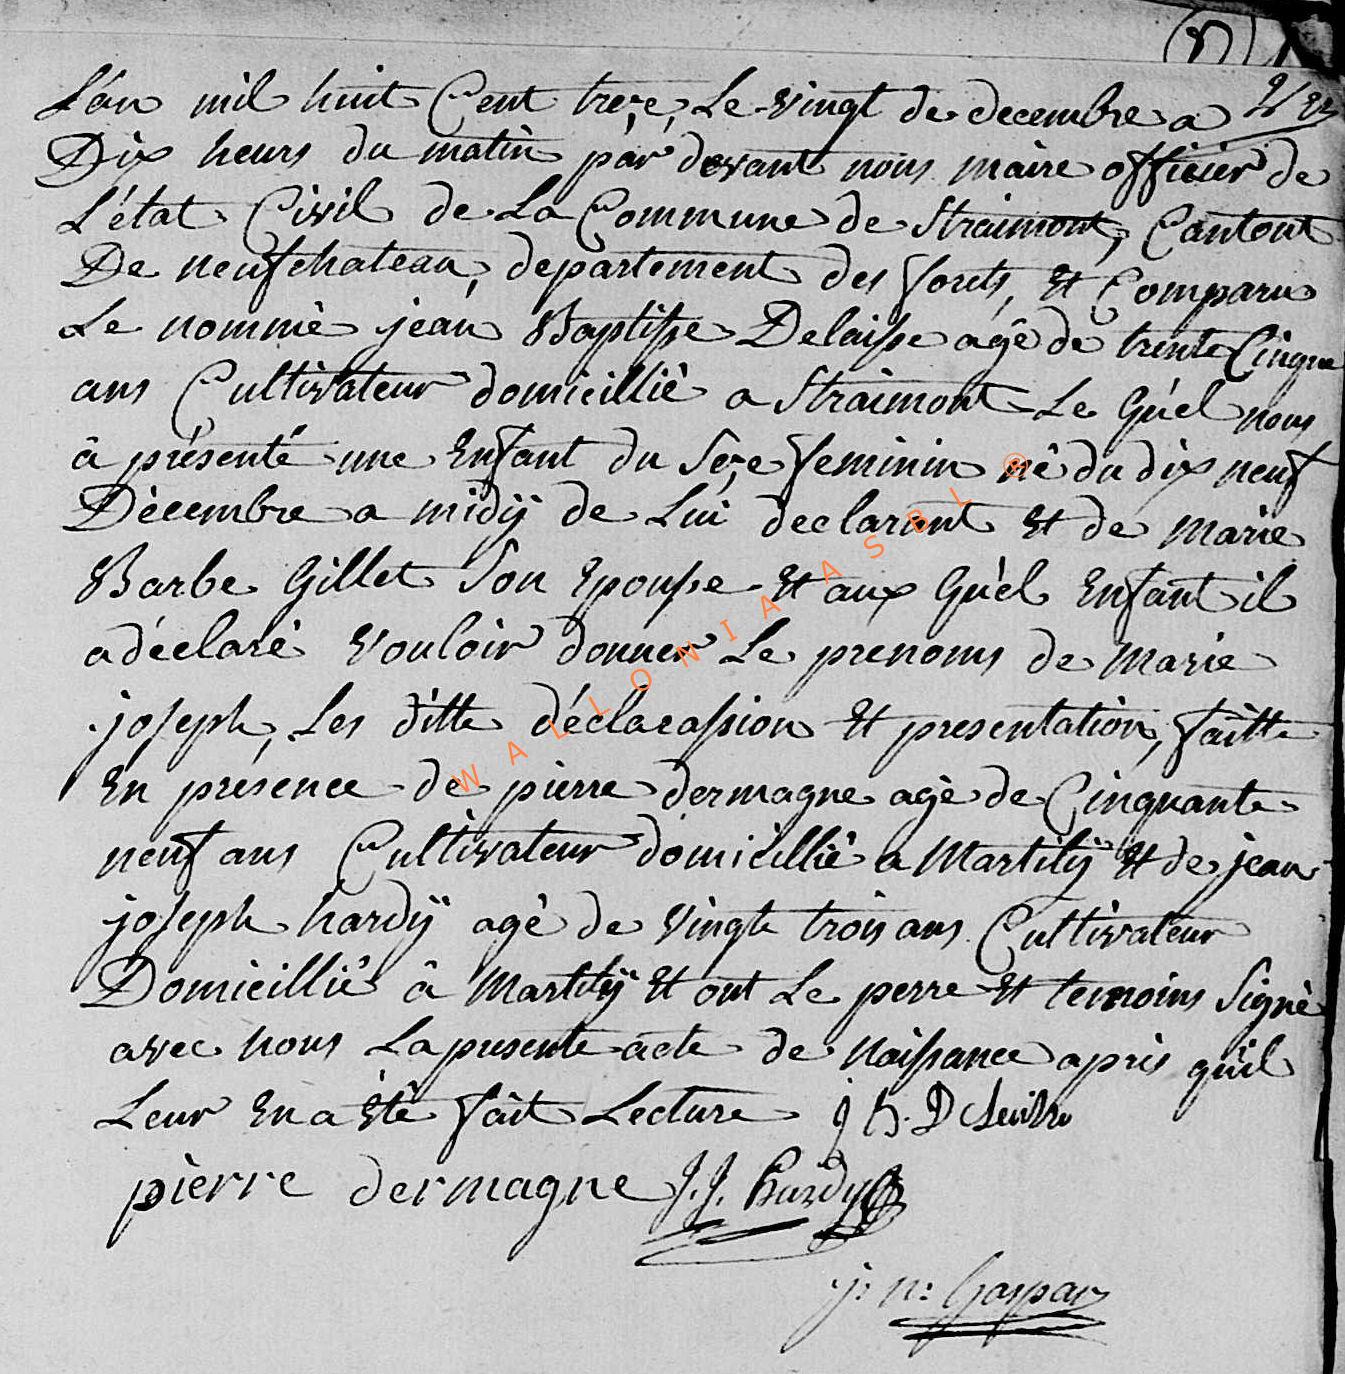 L'an mil huit Cent treze, Le vingt de decembre a
Dix heurs du matin par devant nous maire officier de
L'état Civil de La Commune de Straimont, Cantont
De neufchateau, departement des forets, Et Comparu
Le nommé jean Baptisse Delaisse agê de trente Cinque
ans Cultivateur domicillié a Straimont Le Quel nous
â présenté une Enfant du Sexe feminin nê du dix neuf
Décembre a midÿ de Lui declarant Et de Marie
Barbe Gillet Son Epousse Et aux Quel Enfant il
a déclaré vouloir donner Le prenoms de Marie
joseph, Les ditte déclarassion Et presentation, faitte
En présence de pierre dermagne agè de Cinquante
neuf ans Cultivateur domicillié a Martilÿ Et de jean
joseph hardÿ agè de vingt trois ans Cultivateur
Domicillié â Martilÿ Et ont Le perre Et temoins Signè
avec nous La presente acte de Naissance apris qu'il
Leur En a Eté fait Lecture j b. D
pierre dermagne J.J. Hardy
j: n: Gaspar
WALLONIA ASBL ®